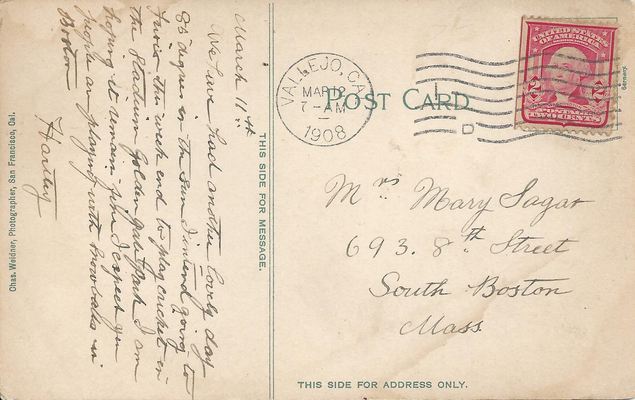 March 11th
We have had another lovely day
85 degrees in the sun I intend going to
Frisco this week end to play cricket in
the Stadium Golden Gate Park I am
hoping it remain fine I expect you
people are playing with snowballs in
Boston
Hartley
THIS SIDE FOR MESSAGE.
Chas. Weidner, Photographer, San Francisco, Cal.
VALLEJO, CA
MAR 12
7-AM
1908
POST CARD
D
UNITED STATES
OF AMERICA
2 2
POSTAGE
TWO CENTS
Germany.
Mrs Mary Sagar
693. 8th Street
South Boston
Mass
THIS SIDE FOR ADDRESS ONLY.